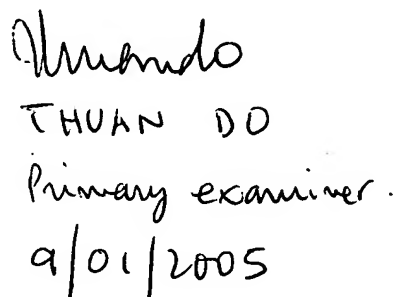 Thuando
THUAN DO
Primary examiner.
9/01/2005